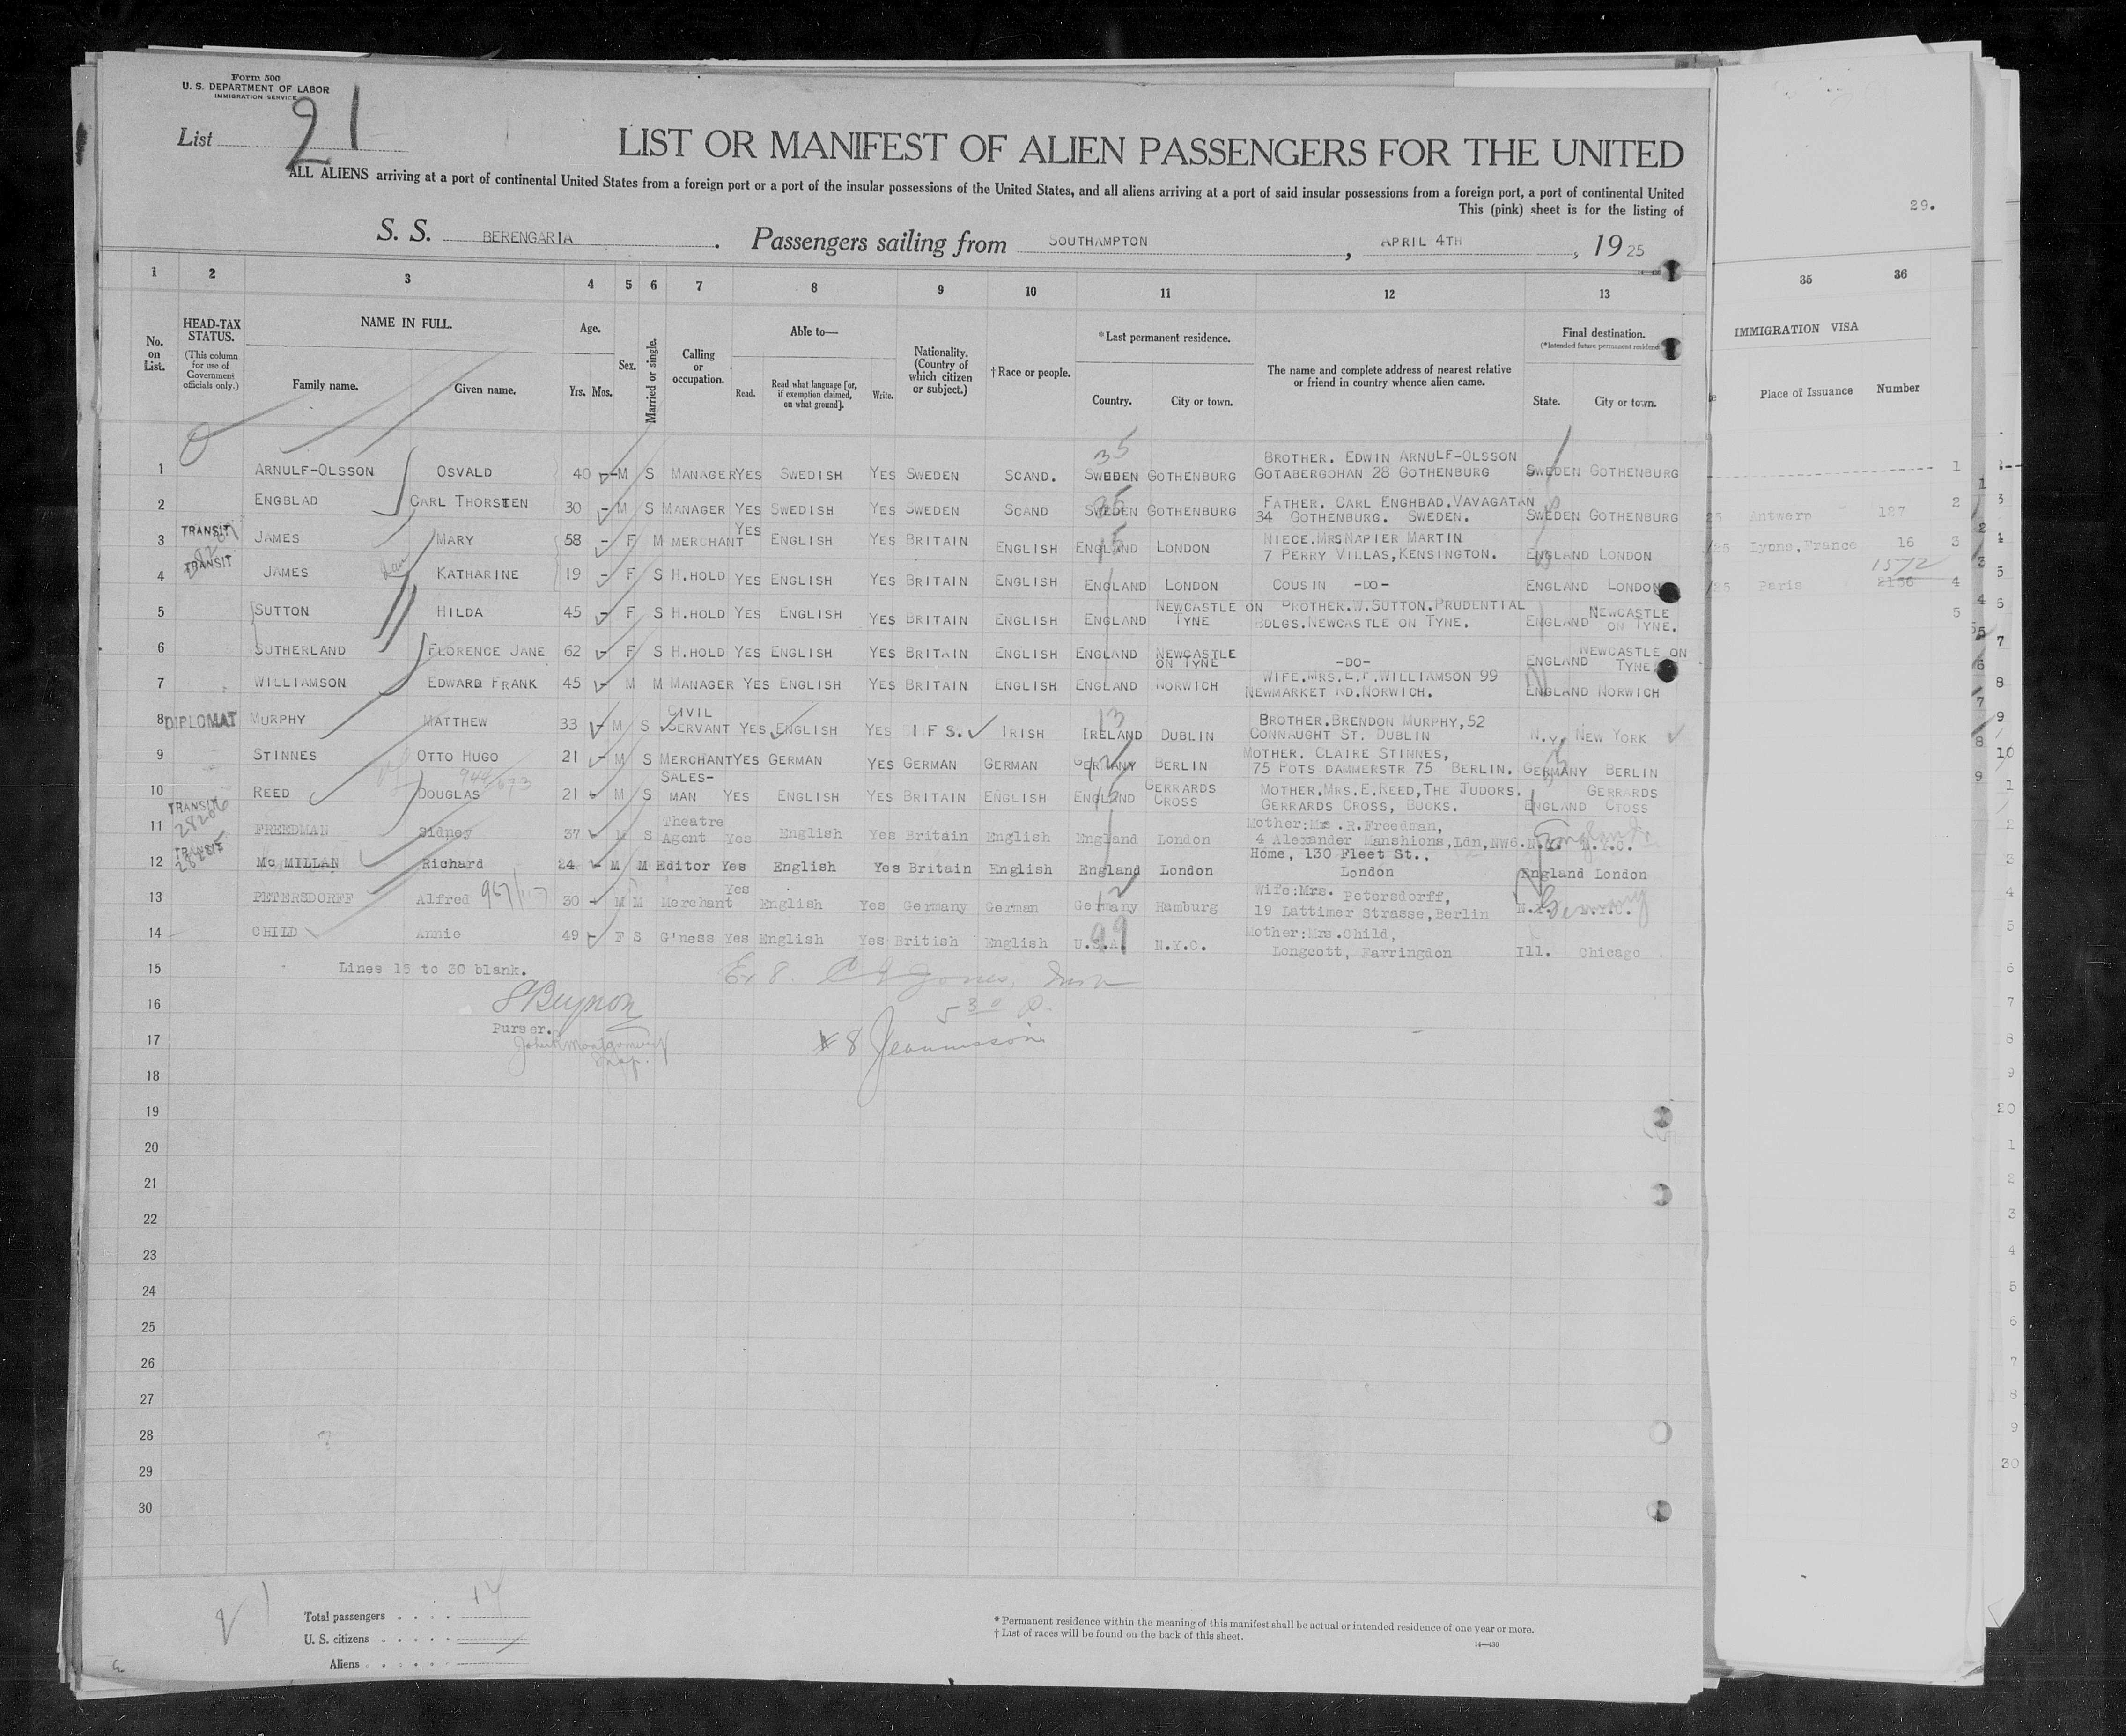 Form 500
U. S. DEPARTMENT OF LABOR
IMMIGRATION SERVICE
List 21
LIST OR MANIFEST OF ALIEN PASSENGERS FOR THE UNITED
ALL ALIENS arriving at a port of continental United States from a foreign port or a port of the insular possessions of the United States, and all aliens arriving at a port of said insular possessions from a foreign port, a port of continental United
This (pink) sheet is for the listing of
29.
S. S. BERENGARIA. Passengers sailing from SOUTHAMPTON, APRIL 4TH, 1925
1 2 3 4 5 6 7 8 9 10 11 12 13 35 36
No. on List.
HEAD-TAX STATUS.
(This column for use of Government officials only.)
NAME IN FULL.
Family name. Given name.
Age.
Yrs. Mos.
Sex.
Married or single.
Calling or occupation.
Able to—
Read. Read what language [or, if exemption claimed, on what ground]. Write.
Nationality. (Country of which citizen or subject.)
†Race or people.
*Last permanent residence.
Country. City or town.
The name and complete address of nearest relative or friend in country whence alien came.
Final destination.
(*Intended future permanent residence
State. City or town.
IMMIGRATION VISA
Place of Issuance Number
1 ARNULF-OLSSON OSVALD 40 M S MANAGER YES SWEDISH YES SWEDEN SCAND. 35 SWEDEN GOTHENBURG BROTHER. EDWIN ARNULF-OLSSON GOTABERGOHAN 28 GOTHENBURG SWEDEN GOTHENBURG
2 ENGBLAD CARL THORSTEN 30 - M S MANAGER YES SWEDISH YES SWEDEN SCAND SWEDEN GOTHENBURG FATHER. CARL ENGHBAD.VAVAGATAN 34 GOTHENBURG. SWEDEN. SWEDEN GOTHENBURG
3 TRANSIT JAMES MARY 58 - F M MERCHANT YES ENGLISH YES BRITAIN ENGLISH 15 ENGLAND LONDON NIECE.MRS NAPIER MARTIN 7 PERRY VILLAS,KENSINGTON. ENGLAND LONDON
4 TRANSIT JAMES KATHARINE 19 - F S H.HOLD YES ENGLISH YES BRITAIN ENGLISH ENGLAND LONDON COUSIN -DO- ENGLAND LONDON
5 SUTTON HILDA 45 - F S H.HOLD YES ENGLISH YES BRITAIN ENGLISH ENGLAND NEWCASTLE ON TYNE BROTHER.W.SUTTON.PRUDENTIAL BDLGS.NEWCASTLE ON TYNE. ENGLAND NEWCASTLE ON TYNE.
6 SUTHERLAND FLORENCE JANE 62 - F S H.HOLD YES ENGLISH YES BRITAIN ENGLISH ENGLAND NEWCASTLE ON TYNE -DO- ENGLAND NEWCASTLE ON TYNE
7 WILLIAMSON EDWARD FRANK 45 - M M MANAGER YES ENGLISH YES BRITAIN ENGLISH ENGLAND NORWICH WIFE.MRS.E.F.WILLIAMSON 99 NEWMARKET RD.NORWICH. ENGLAND NORWICH
8 DIPLOMAT MURPHY MATTHEW 33 - M S CIVIL SERVANT YES ENGLISH YES I F S. IRISH 13 IRELAND DUBLIN BROTHER.BRENDON MURPHY,52 CONNAUGHT ST. DUBLIN N.Y. NEW YORK
9 STINNES OTTO HUGO 21 - M S MERCHANT YES GERMAN YES GERMAN GERMAN 12 GERMANY BERLIN MOTHER. CLAIRE STINNES, 75 POTS DAMMERSTR 75 BERLIN. GERMANY BERLIN
10 REED DOUGLAS 21 M S SALES-MAN YES ENGLISH YES BRITAIN ENGLISH ENGLAND GERRARDS CROSS MOTHER.MRS.E.REED,THE JUDORS. GERRARDS CROSS, BUCKS. ENGLAND GERRARDS CTOSS
11 TRANSIT 28266 FREEDMAN Sidney 37 M S Theatre Agent Yes English Yes Britain English England London Mother:Mrs.R.Freedman, 4 Alexander Manshions,Ldn,NW6. N.Y. N.Y.C. England
12 TRANSIT Mc MILLAN Richard 24 M M Editor Yes English Yes Britain English England London Home, 130 Fleet St., London England London
13 PETERSDORFF Alfred 30 M M Merchant Yes English Yes Germany German 12 Germany Hamburg Wife:Mrs. Petersdorff, 19 Lattimer Strasse,Berlin N.Y. N.Y.C. Germany
14 CHILD Annie 49 F S G'ness Yes English Yes British English 99 U.S.A. N.Y.C. Mother:Mrs.Child, Longcott, Farringdon Ill. Chicago
15 Lines 15 to 30 blank.
16
Purser.
17
18
19
20
21
22
23
24
25
26
27
28
29
30
Antwerp 187
Lyons,France 16
1572
Paris 2156
Total passengers 14
U. S. citizens
Aliens
* Permanent residence within the meaning of this manifest shall be actual or intended residence of one year or more.
† List of races will be found on the back of this sheet.
14—430